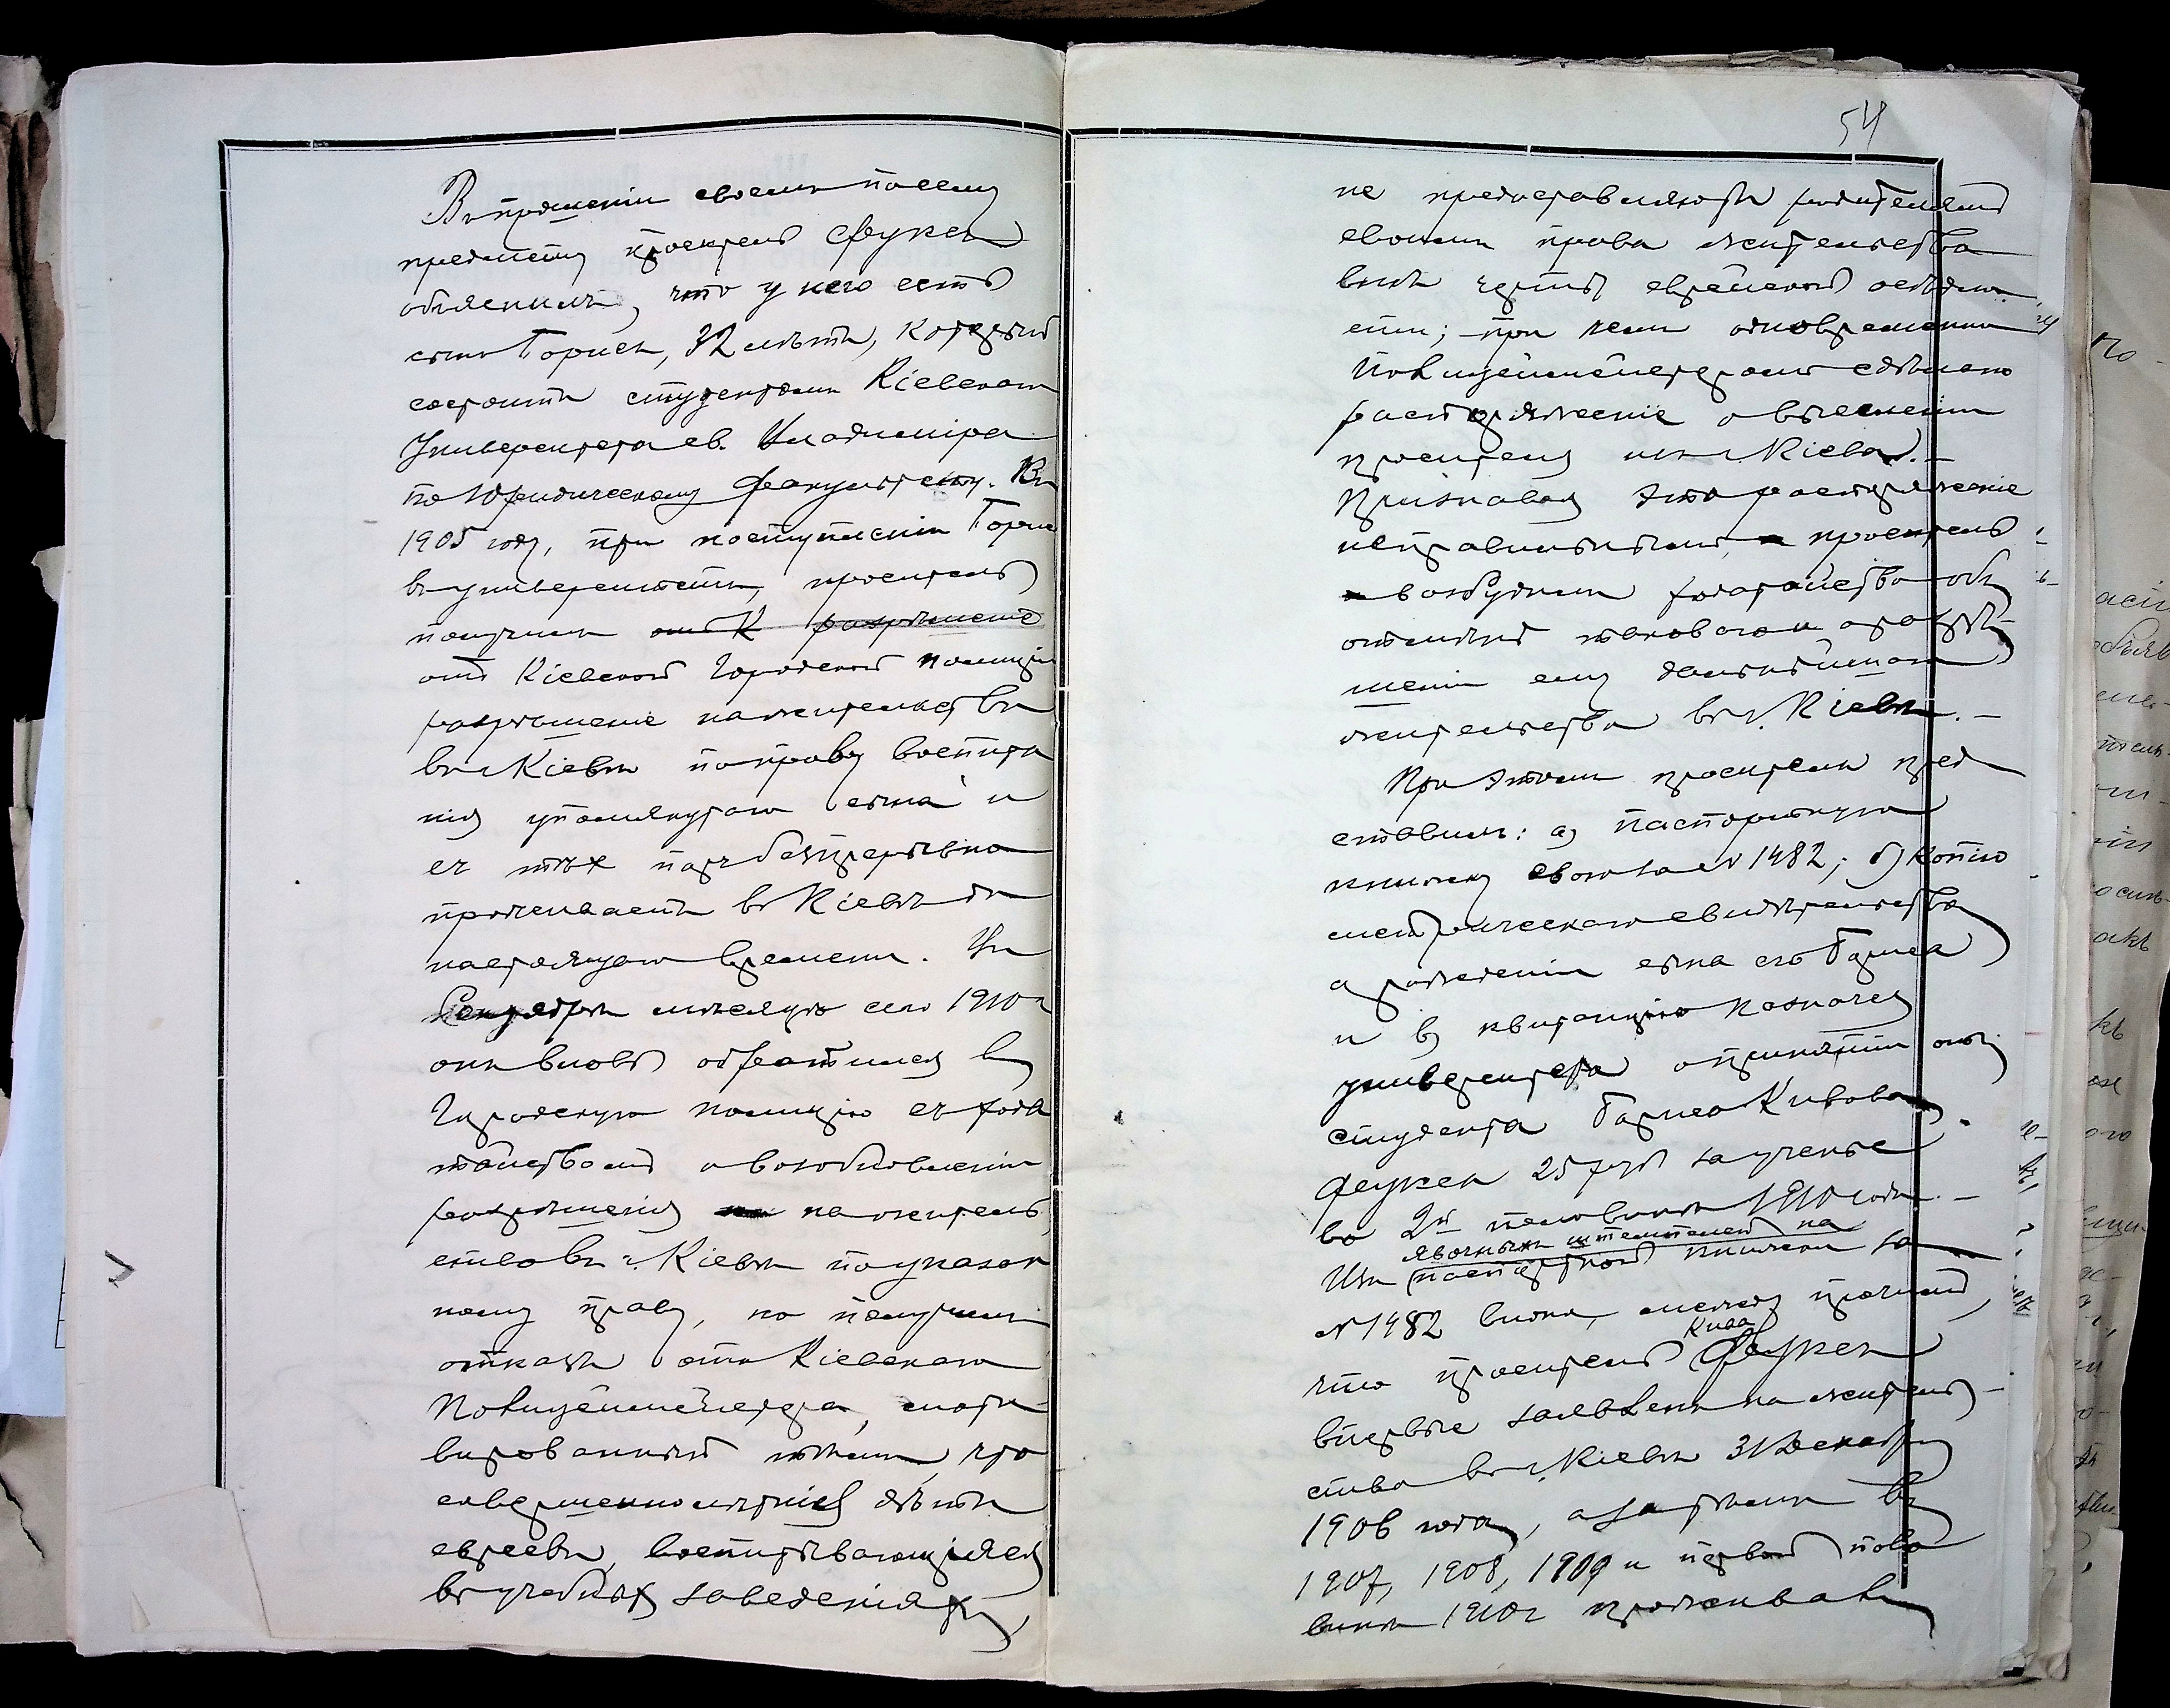 Въ прошеніи своемъ по сему
предмету проситель Фуксъ
объяснилъ, что у него есть
сынъ Борисъ, 32 лѣтъ, который
состоитъ студентомъ Кіевскаго
Университета св. Владиміра
по Юридическому факультету. Въ
1905 году, при поступленіи Бориса
въ университетъ, проситель
получилъ разрѣшеніе
отъ Кіевской Городской полиціи
разрѣшеніе на жительство
въ г. Кіевѣ по праву воспита
нія упомянутаго сына и
съ тѣхъ поръ безпрерывно
проживаетъ въ Кіевѣ до
настоящаго времени. Въ
Сентябрѣ мѣсяцѣ сего 1910 г
онъ вновь обратился въ
Городскую полицію съ хода
тайствомъ о возобновленіи
разрѣшенія на житель
ство въ г. Кіевѣ по указан
ному праву, но получилъ
отказъ отъ Кіевскаго
Полицеймейстера, моти
вированный тѣмъ, что
совершеннолѣтнія дѣти
евреевъ, воспитывающіяся
въ учебныхъ заведеніяхъ,
54
не предоставляютъ родителямъ
своимъ права жительства
внѣ черты еврейской осѣдло
сти; при чемъ одновременно
Полицеймейстеромъ сдѣлано
распоряженіе о выселеніи
просителя изъ г. Кіева.
Признавая это распоряженіе
неправильнымъ, проситель
возбудилъ ходатайство объ
отмѣнѣ таковаго и о разрѣ
шеніи ему дальнѣйшаго
жительства въ г. Кіевѣ.
При этомъ проситель пред
ставилъ: а) паспортную
книжку свою за № 1482; б) копію
метрическаго свидѣтельства
о рожденіи сына его Бориса
и в) квитанцію Казначея
университета о принятіи отъ
студента Бориса Кивова
Фуксъ 25 руб за ученье
во 2й половинѣ 1910 года.
явочныхъ штемпелей на
Изъ паспортной книжки за
№ 1482 видно, между прочимъ,
Кива
что проситель Фуксъ
впервые заявленъ на житель
ство въ г. Кіевѣ 31 Декабря
1906 года, а затѣмъ въ
1907, 1908, 1909 и первой поло
винѣ 1910 г проживалъ